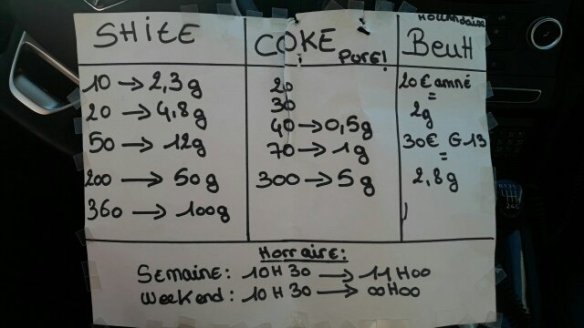 SHiTE
10 → 2,3g
20 → 4,8g
50 → 12g
200 → 50g
360 → 100g
COKE
PURE!
20
30
40 → 0,5g
70 → 1g
300 → 5g
HOLLANDAISE
BeuH
20€ amné
=
2g
30€ G13
=
2,8g
HorrAiRE:
SEMAiNE: 10H30 → 11H00
weekend: 10H30 → 00H00